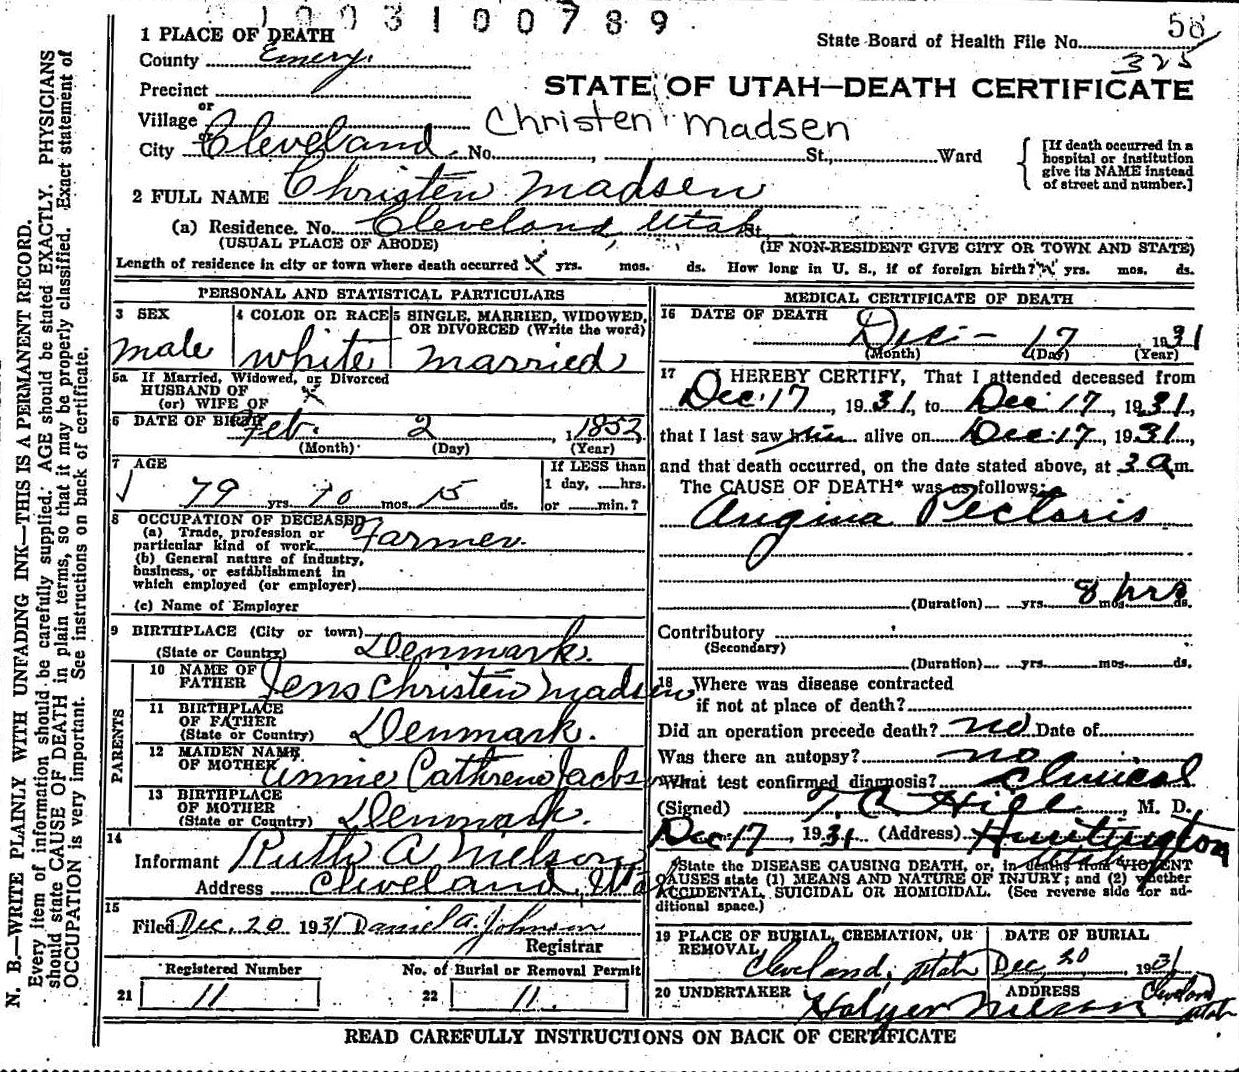 1003100789
58
1 PLACE OF DEATH
State Board of Health File No.
325
County Emery.
Precinct
STATE OF UTAH—DEATH CERTIFICATE
or
Village
Christen Madsen
or
City Cleveland No. , St., Ward
[If death occurred in a
hospital or institution
give its NAME instead
of street and number.]
2 FULL NAME Christen Madsen
(a) Residence. No. Cleveland, Utah St.
(USUAL PLACE OF ABODE) (IF NON-RESIDENT GIVE CITY OR TOWN AND STATE)
Length of residence in city or town where death occurred yrs. mos. ds. How long in U. S., if of foreign birth? yrs. mos. ds.
PERSONAL AND STATISTICAL PARTICULARS
3 SEX
male
4 COLOR OR RACE
white
5 SINGLE, MARRIED, WIDOWED,
OR DIVORCED (Write the word)
married
5a If Married, Widowed, or Divorced
HUSBAND OF
(or) WIFE OF
x
6 DATE OF BIRTH Feb. 2, 1852
(Month) (Day) (Year)
7 AGE
79 yrs. 10 mos. 15 ds.
If LESS than
1 day, hrs.
or min.?
8 OCCUPATION OF DECEASED
(a) Trade, profession or
particular kind of work Farmer.
(b) General nature of industry,
business, or establishment in
which employed (or employer)
(c) Name of Employer
9 BIRTHPLACE (City or town)
(State or Country) Denmark.
PARENTS
10 NAME OF
FATHER Jens Christen Madsen
11 BIRTHPLACE
OF FATHER
(State or Country) Denmark.
12 MAIDEN NAME
OF MOTHER Annie Cathrene
13 BIRTHPLACE
OF MOTHER
(State or Country) Denmark.
14
Informant Ruth A Nielson
Address Cleveland, Utah
15
Filed Dec. 20 1931 Daniel A. Johnson
Registrar
Registered Number
21 11
No. of Burial or Removal Permit
22 11.
MEDICAL CERTIFICATE OF DEATH
16 DATE OF DEATH
Dec — 17 1931
(Month) (Day) (Year)
17 I HEREBY CERTIFY, That I attended deceased from
Dec. 17, 1931, to Dec. 17, 1931,
that I last saw him alive on Dec. 17, 1931,
and that death occurred, on the date stated above, at 3 am.
The CAUSE OF DEATH* was as follows:
Angina Pectoris
(Duration) yrs. 8 mos. hrs ds.
Contributory
(Secondary)
(Duration) yrs. mos. ds.
18 Where was disease contracted
if not at place of death?
Did an operation precede death? no Date of
Was there an autopsy? no
What test confirmed diagnosis? Clinical
(Signed) T. C. Hill, M. D.
Dec 17, 1931 (Address) Huntington
Utah
*State the DISEASE CAUSING DEATH, or, in deaths from VIOLENT
CAUSES state (1) MEANS AND NATURE OF INJURY; and (2) whether
ACCIDENTAL, SUICIDAL OR HOMICIDAL. (See reverse side for ad-
ditional space.)
19 PLACE OF BURIAL, CREMATION, OR
REMOVAL
Cleveland, Utah
DATE OF BURIAL
Dec 20 1931
20 UNDERTAKER
Holger Nielson
ADDRESS
Cleveland
Utah
READ CAREFULLY INSTRUCTIONS ON BACK OF CERTIFICATE
N. B.—WRITE PLAINLY WITH UNFADING INK—THIS IS A PERMANENT RECORD.
Every item of information should be carefully supplied. AGE should be stated EXACTLY. PHYSICIANS
should state CAUSE OF DEATH in plain terms, so that it may be properly classified. Exact statement of
OCCUPATION is very important. See instructions on back of certificate.